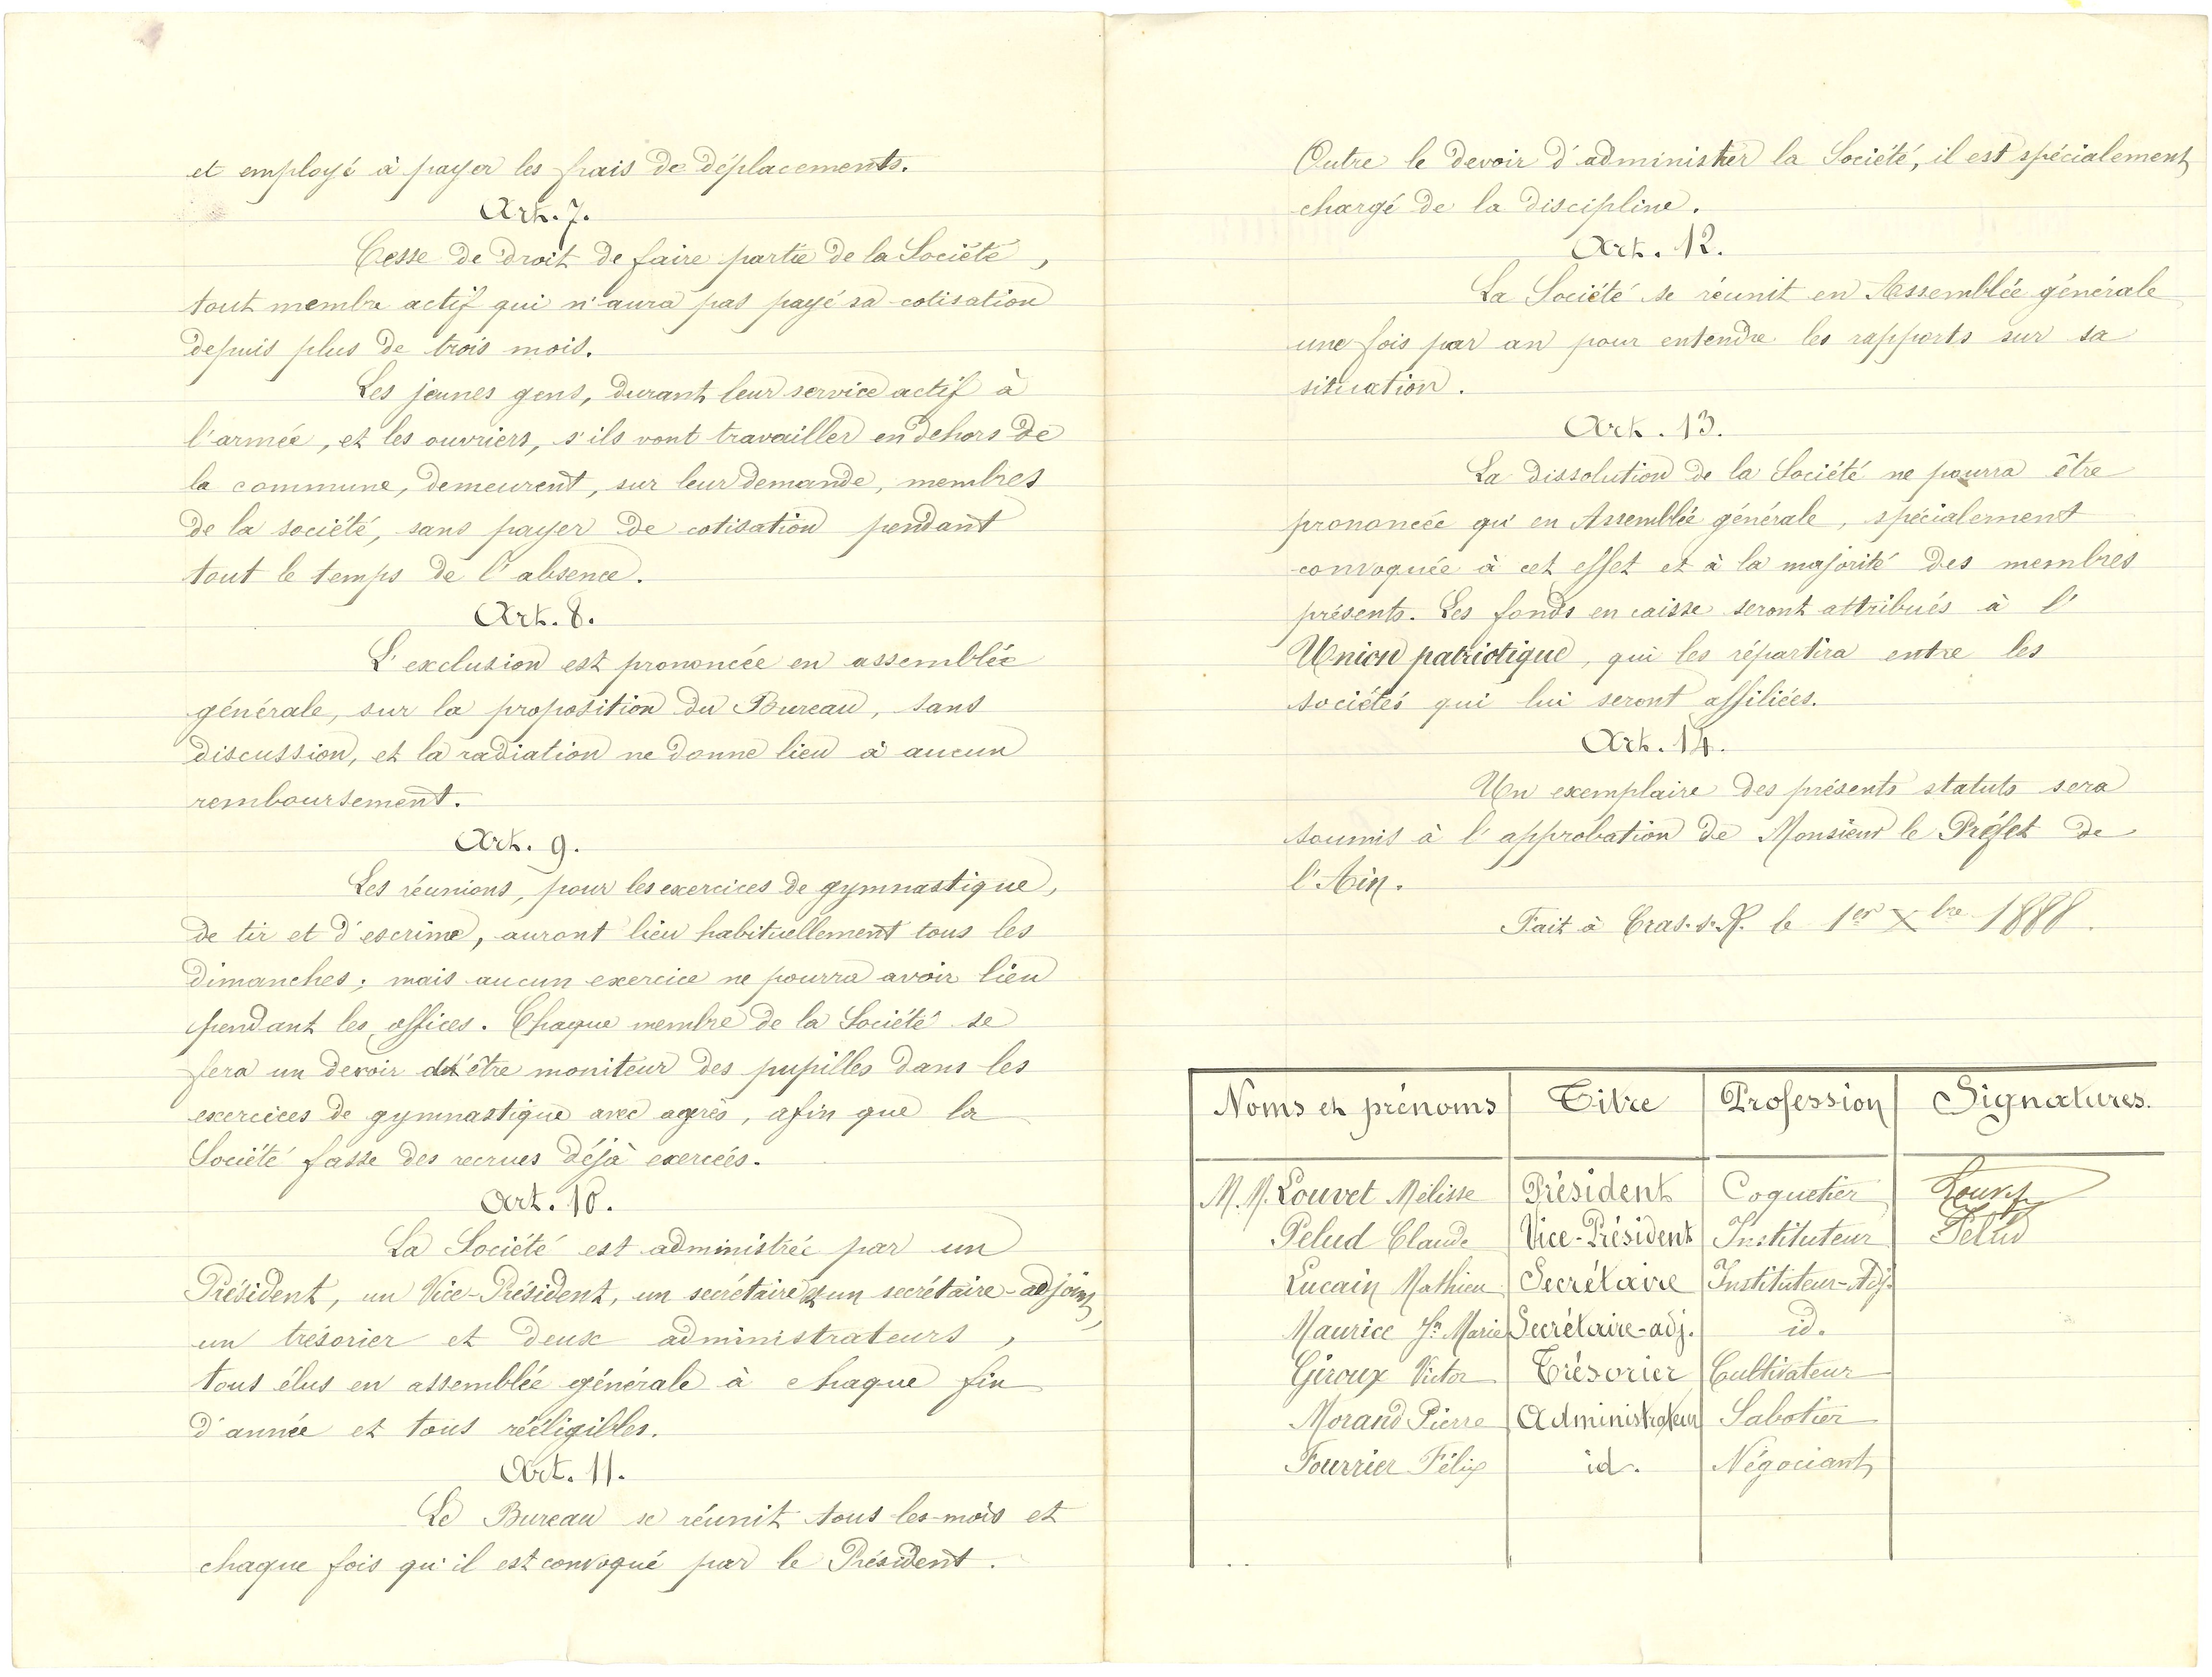 et employé à payer les frais de déplacements.
Art. 7.
Cesse de droit de faire partie de la Société,
tout membre actif qui n'aura pas payé sa cotisation
depuis plus de trois mois.
Les jeunes gens, durant leur service actif à
l'armée, et les ouvriers, s'ils vont travailler en dehors de
la commune, demeurent, sur leur demande, membres
de la société, sans payer de cotisation pendant
tout le temps de l'absence.
Art. 8.
L'exclusion est prononcée en assemblée
générale, sur la proposition du Bureau, sans
discussion, et la radiation ne donne lieu à aucun
remboursement.
Art. 9.
Les réunions, pour les exercices de gymnastique,
de tir et d'escrime, auront lieu habituellement tous les
dimanches; mais aucun exercice ne pourra avoir lieu
pendant les offices. Chaque membre de la Société se
fera un devoir d'être moniteur des pupilles dans les
exercices de gymnastique avec agrès, afin que la
Société fasse des recrues déjà exercées.
Art. 10.
La Société est administrée par un
Président, un Vice-Président, un secrétaire et un secrétaire-adjoint,
un trésorier et deux administrateurs,
tous élus en assemblée générale à chaque fin
d'année et tous rééligibles.
Art. 11.
Le Bureau se réunit tous les mois et
chaque fois qu'il est convoqué par le Président.
Outre le devoir d'administrer la Société, il est spécialement
chargé de la discipline.
Art. 12.
La Société se réunit en Assemblée générale
une fois par an pour entendre les rapports sur sa
situation.
Art. 13.
La dissolution de la Société ne pourra être
prononcée qu'en Assemblée générale, spécialement
convoquée à cet effet et à la majorité des membres
présents. Les fonds en caisse seront attribués à l'
Union patriotique, qui les répartira entre les
sociétés qui lui seront affiliées.
Art. 14.
Un exemplaire des présents statuts sera
soumis à l'approbation de Monsieur le Préfet de
l'Ain.
Fait à Cras. s. R. le 1er Xbre 1888.
Noms et prénoms Titre Profession Signatures.
M.M. Louvet Mélisse Président Coquetier Louvet
Pelud Claude Vice-Président Instituteur Pelud
Lucain Mathieu Secrétaire Instituteur-Adj.
Maurice Jn Marie Secrétaire-adj. id.
Giroux Victor Trésorier Cultivateur
Morand Pierre Administrateur Sabotier
Fourrier Félix id. Négociant